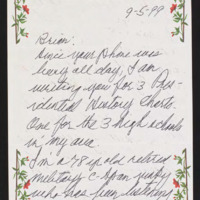 9-5-99
Brian:
Since your phone was
busy all day, I am
writing you for 3 Pres-
idential History Charts.
One for the 3 high schools
in my area
I'm a 48 yr old retired
military C-Span junky
who has been